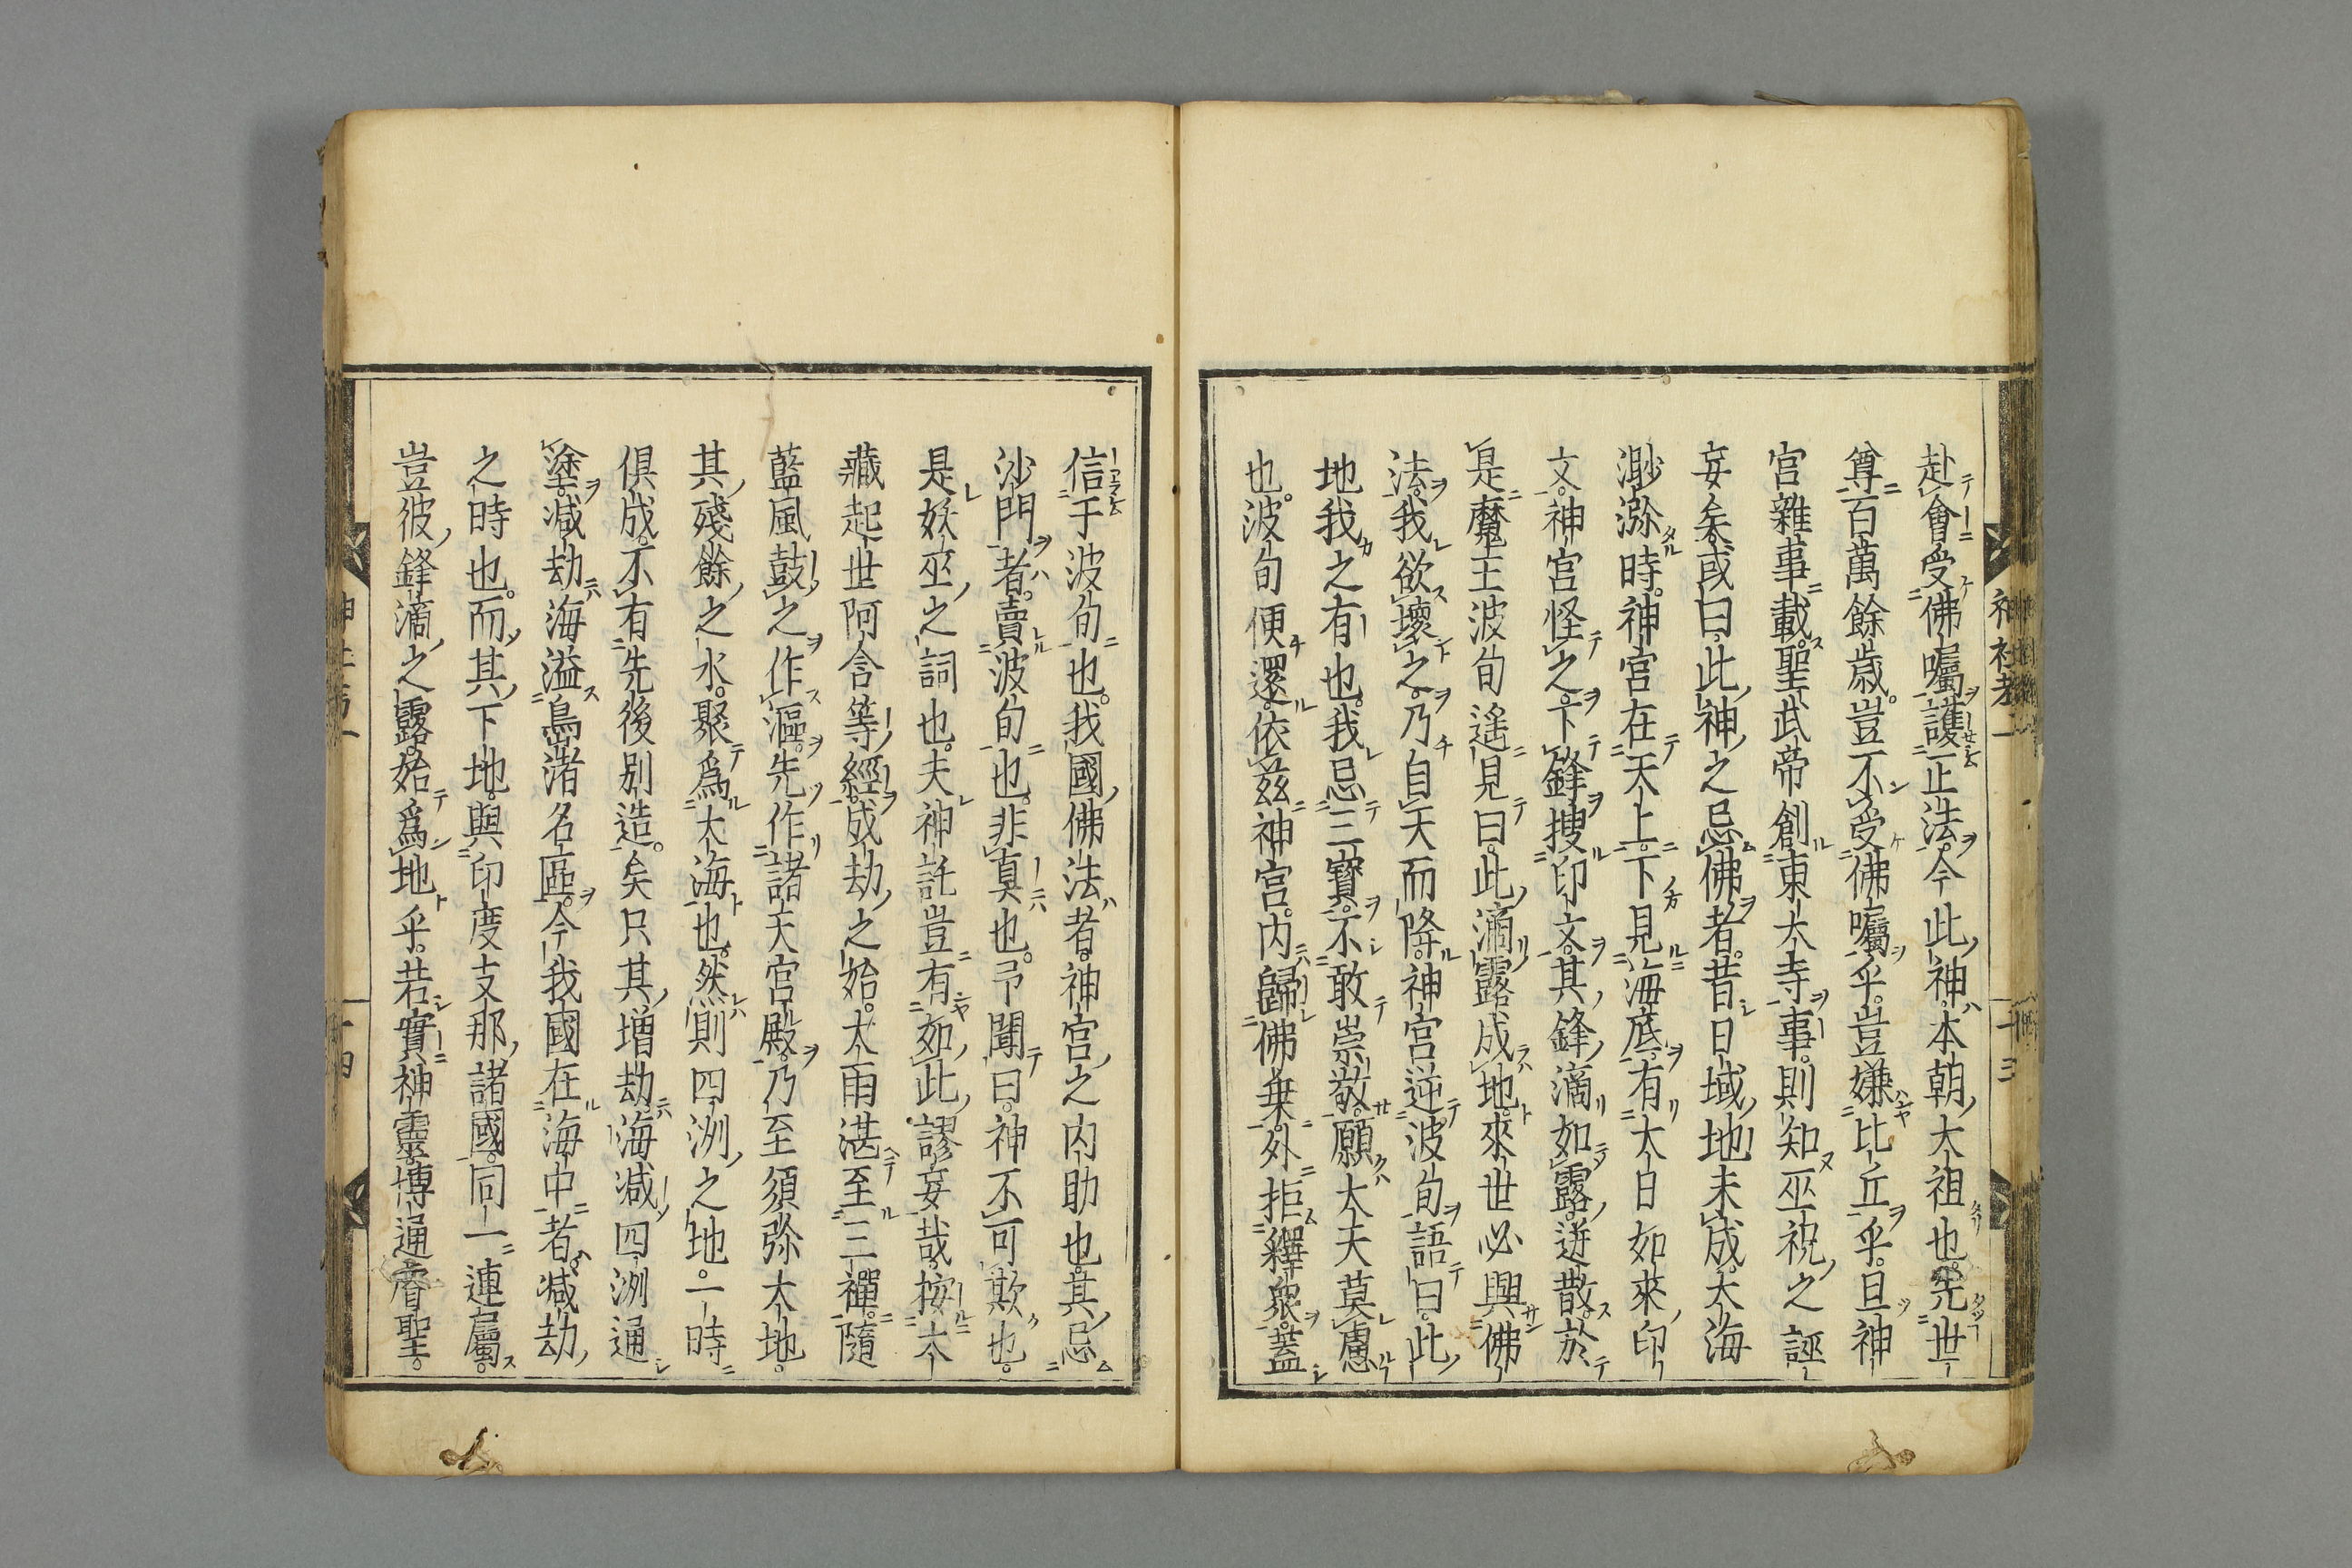 赴會受佛囑護正法今此神本朝太祖也先世
尊百萬餘歲豈不受佛囑乎豈嫌比丘乎且神
宮雜事載聖武帝創東大寺事則知巫祝之誣
妄矣或曰此神之忌佛者昔日域地未成大海
渺瀰時神宮在天上下見海底有大日如來印
文神宮怪之下鋒搜印文其鋒滴如露迸散於
是魔王波旬遙見曰此滴露成地來世必興佛
法我欲壞之乃自天而降神宮逆波旬語曰此
地我之有也我忌三寶不敢崇敬願大夫莫慮
也波旬便還依茲神宮內歸佛乗外拒釋衆蓋
信于波旬也我國佛法者神宮之內助也其忌
沙門者賣波旬也非真也予聞曰神不可欺也
是妖巫之詞也夫神託豈有如此謬妄哉按大
藏起世阿含等經成劫之始大雨湛至三禪隨
藍風鼓之作漚先作諸天宮殿乃至須弥大地
其殘餘之水聚爲大海也然則四洲之地一時
俱成不有先後別造矣只其增劫海減四洲通
塗減劫海溢島渚名區今我國在海中者減劫
之時也而其下地與印度支那諸國同一連屬
豈彼鋒滴之露始爲地乎若實神靈博通睿聖
神社考一
十三
十四